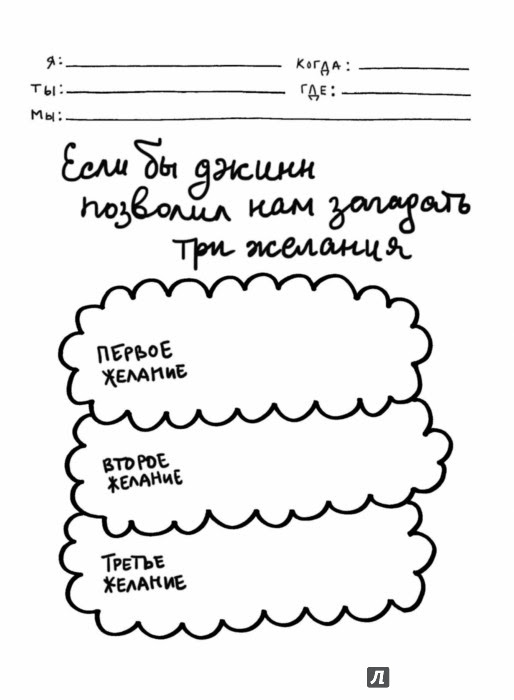 Я: КОГДА:
ТЫ: ГДЕ:
МЫ:
Если бы джинн
позволил нам загадать
три желания
ПЕРВОЕ
ЖЕЛАНИЕ
ВТОРОЕ
ЖЕЛАНИЕ
ТРЕТЬЕ
ЖЕЛАНИЕ
Л